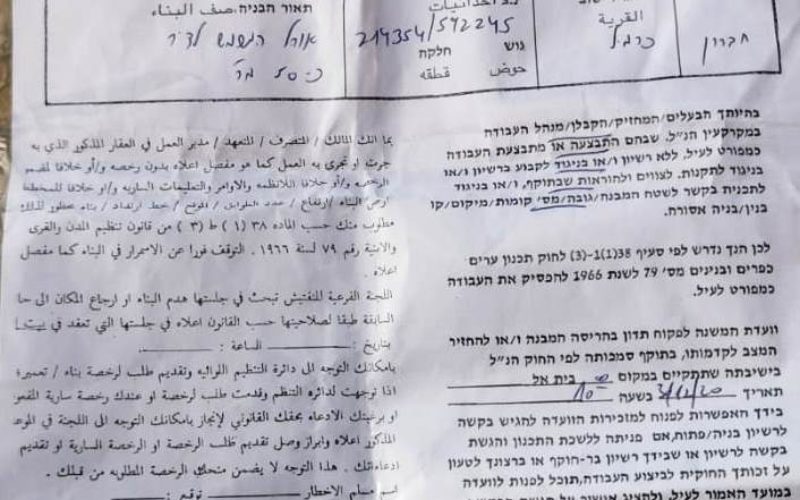 תאור הבניה: صف البناء
אוהל המשמש לדיר
כ-50 מ"ר
נ.צ احداثيات
214354/592245
גוש חלקה
حوض قطعه
הקריה
כרמל
חברון
בהיותך הבעלים/המחזיק/הקבלן/מנהל העבודה
במקרקעין הנ"ל, שבהם התבצעה או מתבצעת העבודה
כמפורט לעיל, ללא רשיון ו/או בניגוד לקבוע ברשיון ו/או
בניגוד לתקנות, לצווים ולהוראות שבתוקף, ו/או בניגוד
לתכנית בקשר לשטח המבנה/גובה/מס' קומות/מיקום/קו
בנין/בניה אסורה.
לכן הנך נדרש לפי סעיף 38(1)-(3) לחוק תכנון ערים
כפרים ובנינים מס' 79 לשנת 1966 להפסיק את העבודה
כמפורט לעיל.
וועדת המשנה לפקוח תדון בהריסה המבנה ו/או להחזיר
המצב לקדמותו, בתוקף סמכותה לפי החוק הנ"ל
בישיבתה שתתקיים במקום בית אל
תאריך 3/11/20 בשעה 10
בידך האפשרות לפנות למזכירות הוועדה להגיש בקשה
לרשיון בניה/פתוח, אם פניתה ללשכת התכנון והגשת
בקשה לרשיון או שבידך רשיון בר-תוקף או ברצונך לטעון
על זכותך החוקית לביצוע העבודה, תוכל לפנות לוועדה
במועד האמור לעיל, ולהציג
بما انك المالك / المتصرف / المتعهد / مدير العمل في العقار المذكور الذي به
جرت او تجرى به العمل كما هو مفصل اعلاه بدون رخصه و/أو خلافا لمضمون
الرخصه و/أو خلافا للانظمه والاوامر والتعليمات الساريه و/او خلافا للمخطط
ارض البناء/ارتفاع / عدد الطوابق / الموقع / خط ارتداد / بناء محظور لذلك
مطلوب منك حسب الماده ٣٨ (١) ط (٣) من قانون تنظيم المدن والقرى
والابنية رقم ٧٩ لسنة ١٩٦٦. التوقف فورا عن الاستمرار في البناء كما مفصل
اعلاه .
اللجنة الفرعية للتفتيش تبحث في جلستها هدم البناء او ارجاع المكان الى
السابقة طبقا لصلاحيتها حسب القانون اعلاه في جلستها التي تعقد في
بتاريخ : الساعة :
بامكانك التوجه الى دائرة التنظيم اللوائيه وتقديم طلب لرخصة بناء / تعمير
اذا توجهت لدائرة التنظيم وقدمت طلب لرخصة او عندك رخصة سارية
او برغبتك الادعاء بحقك القانوني لإنجاز بامكانك التوجه الى اللجنة في
المذكور اعلاه وابراز وصل تقديم طلب الرخصة او الرخصة السارية او تقديم
ادعاءاتك . هذا التوجه لا يضمن منحك الرخصة المطلوبه من قبلك .
اسم مسلم الاخطار توقيع :